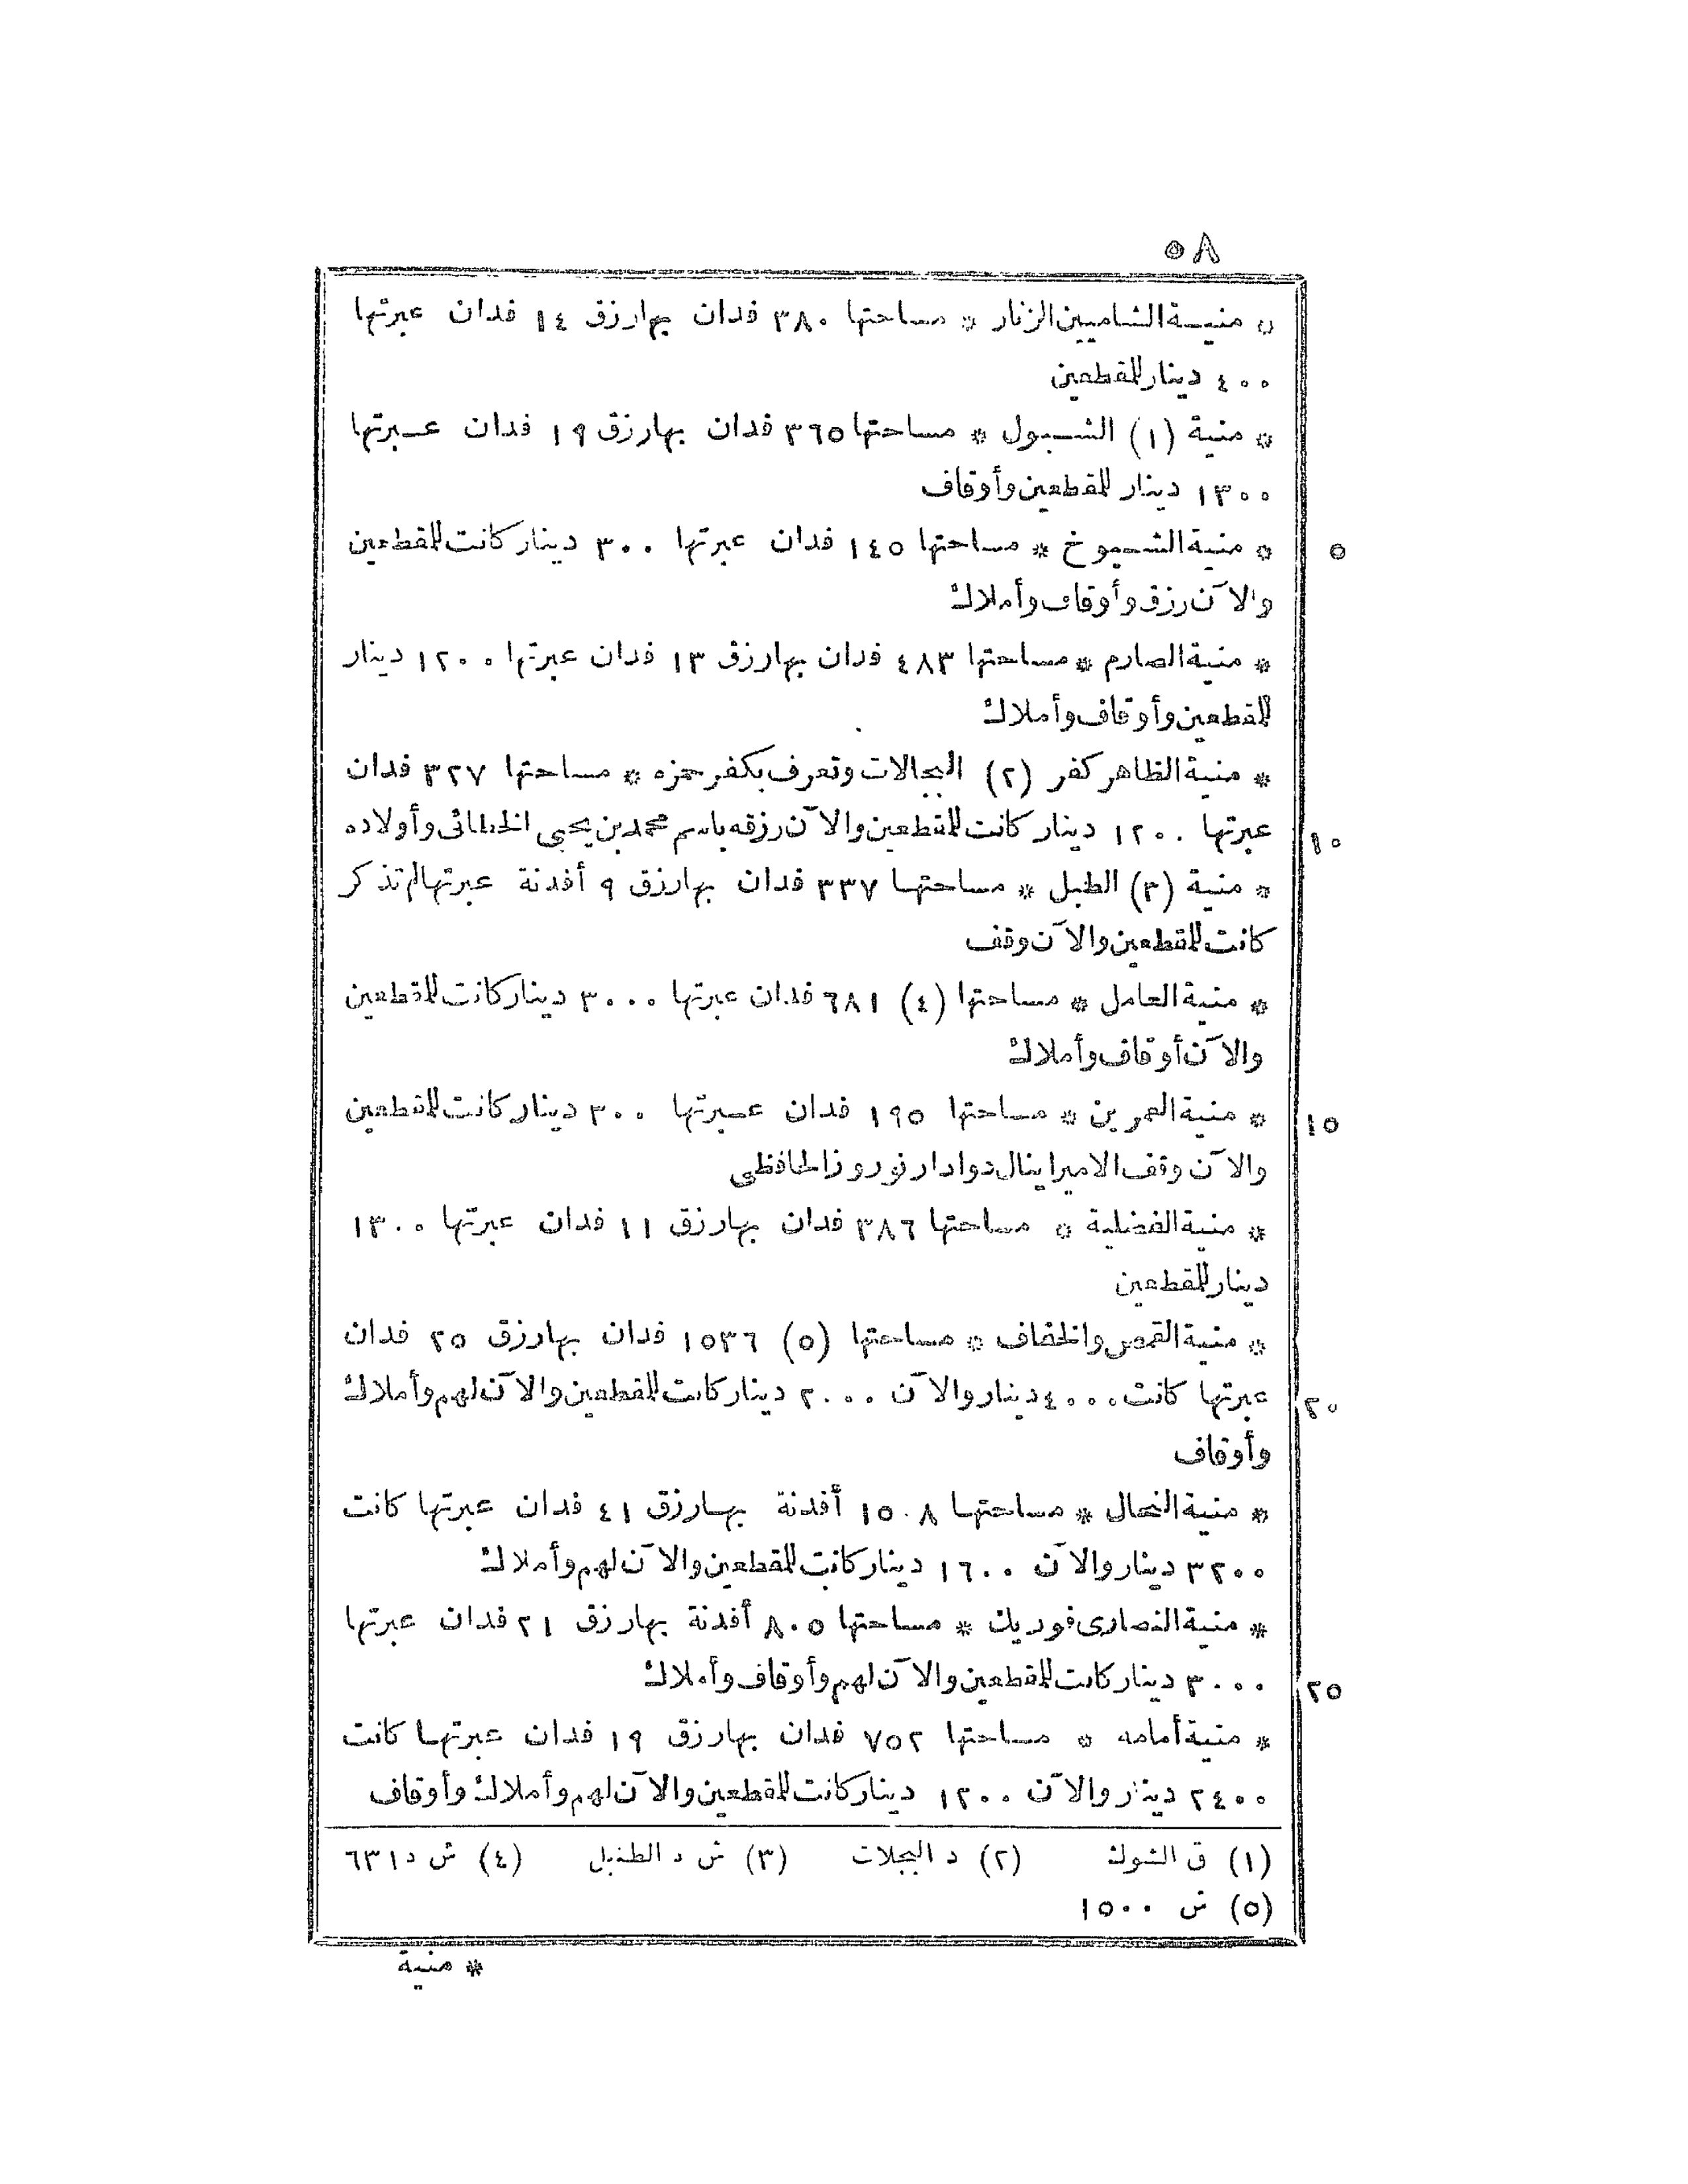 ٥٨
* منية الشاميين الزنار * مساحتها ٣٨٠ فدان بها رزق ١٤ فدان عبرتها
٤٠٠ دينار للمقطعين
* منية (١) الشبول * مساحتها ٣٦٥ فدان بها رزق ١٩ فدان عبرتها
١٣٠٠ دينار للمقطعين وأوقاف
* منية الشيوخ * مساحتها ١٤٥ فدان عبرتها ٣٠٠ دينار كانت للمقطعين ٥
والآن رزق وأوقاف وأملاك
* منية الصارم * مساحتها ٤٨٣ فدان بها رزق ١٣ فدان عبرتها ١٢٠٠ دينار
للمقطعين وأوقاف وأملاك
* منية الظاهر كفر (٢) البجالات وتعرف بكفر حمزه * مساحتها ٣٢٧ فدان
عبرتها ١٢٠٠ دينار كانت للمقطعين والآن رزقه باسم محمد بن يحيى الخطائى وأولاده ١٠
* منية (٣) الطبل * مساحتها ٣٣٧ فدان بها رزق ٩ أفدنة عبرتها لم تذكر
كانت للمقطعين والآن وقف
* منية العامل * مساحتها (٤) ٦٨١ فدان عبرتها ٣٠٠٠ دينار كانت للمقطعين
والآن أوقاف وأملاك
* منية العمرين * مساحتها ١٩٥ فدان عبرتها ٣٠٠ دينار كانت للمقطعين ١٥
والآن وقف الامير اينال دوادار نوروز الحافظى
* منية الفضلية * مساحتها ٣٨٦ فدان بها رزق ١١ فدان عبرتها ١٣٠٠
دينار للمقطعين
* منية القمص والخفاف * مساحتها (٥) ١٥٣٦ فدان بها رزق ٢٥ فدان
عبرتها كانت ٤٠٠٠ دينار والآن ٢٠٠٠ دينار كانت للمقطعين والآن لهم وأملاك ٢٠
وأوقاف
* منية النحال * مساحتها ١٥٠٨ أفدنة بها رزق ٤١ فدان عبرتها كانت
٣٢٠٠ دينار والآن ١٦٠٠ دينار كانت للمقطعين والآن لهم وأملاك
* منية النصارى فوريك * مساحتها ٨٠٥ أفدنة بها رزق ٢١ فدان عبرتها
٣٠٠٠ دينار كانت للمقطعين والآن لهم وأوقاف وأملاك ٢٥
* منية أمامه * مساحتها ٧٥٢ فدان بها رزق ١٩ فدان عبرتها كانت
٢٤٠٠ دينار والآن ١٢٠٠ دينار كانت للمقطعين والآن لهم وأملاك وأوقاف
(١) ق الشوك (٢) د البجلات (٣) ش د الطنبل (٤) ش د ٦٣١
(٥) ش ١٥٠٠
* منية